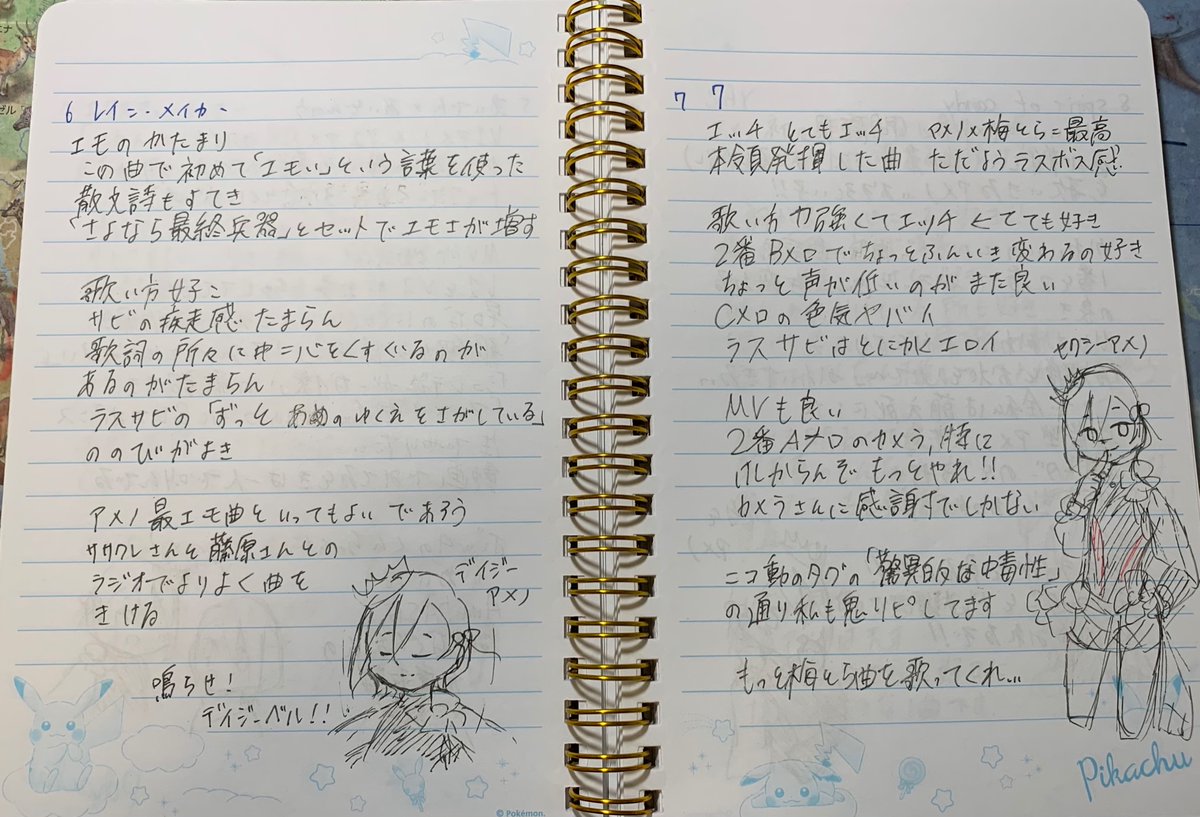 6 レイニー・メイカー
エモのかたまり
この曲で初めて「エモい」という言葉を使った
散文詩もすてき
「さよなら最終兵器」とセットでエモさが増す
歌い方好こ
サビの疾走感たまらん
歌詞の所々に中二心をくすぐるのが
あるのがたまらん
ラスサビの「ずっと あめのゆくえをさがしている」
ののびがよき
アメノ最エモ曲といってもよいであろう
ササクレさんと藤原さんとの
ラジオでよりよく曲を
きける
デイジー
アメノ
鳴らせ!
デイジーベル!!
© Pokémon.
7 7
エッチ とてもエッチ アメノ×梅とら=最高
本領発揮した曲 ただようラスボス感
歌い方力強くてエッチ ←とても好き
2番Bメロでちょっとふんいき変わるの好き
ちょっと声が低いのがまた良い
Cメロの色気ヤバイ
ラスサビはとにかくエロイ
セクシーアメノ
MVも良い
2番Aメロのカメラ,特に
けしからんぞ もっとやれ!!
カメラさんに感謝すでしかない
ニコ動のタグの「驚異的な中毒性」
の通り私も鬼リピしてます
もっと梅とら曲を歌ってくれ...
Pikachu